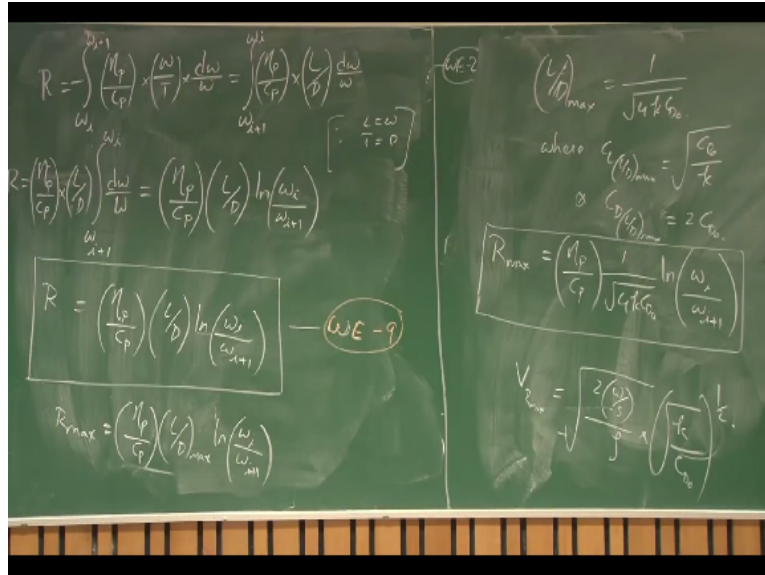 R = -∫_{ω_i}^{ω_{i+1}} (η_p/c_p) × (W/T) × dw/w = ∫_{ω_{i+1}}^{ω_i} (η_p/c_p) × (L/D) dw/w
[∵ L=W
T=D]
R = (η_p/c_p) × (L/D) ∫_{ω_{i+1}}^{ω_i} dw/w = (η_p/c_p) (L/D) ln(ω_i/ω_{i+1})
R = (η_p/c_p) (L/D) ln(ω_i/ω_{i+1}) — WE-9
R_max = (η_p/c_p) (L/D)_max ln(ω_i/ω_{i+1})
WE-2
(L/D)_max = 1/√(4kC_{D_0})
where C_{L(L/D)_max} = √(C_{D_0}/k)
& C_{D(L/D)_max} = 2C_{D_0}
R_max = (η_p/c_p) 1/√(4kC_{D_0}) ln(ω_i/ω_{i+1})
V_{R_max} = √(2(W/S)/ρ) × (√(k/C_{D_0}))^{1/2}